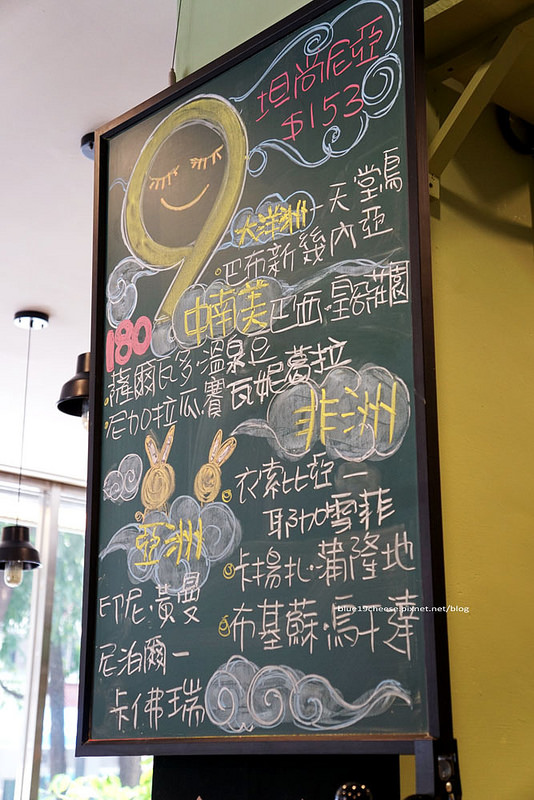 坦尚尼亞
$153
9
大洋洲-天堂鳥
巴布新幾內亞
中南美 巴西.皇家莊園
180
薩爾瓦多.溫泉豆
尼加拉瓜.賽瓦妮葛拉
非洲
衣索比亞-
耶加雪菲
卡揚扎.蒲隆地
布基蘇.烏干達
亞洲
印尼.黃曼
尼泊爾-
卡佛瑞
blue19cheese.pixnet.net/blog